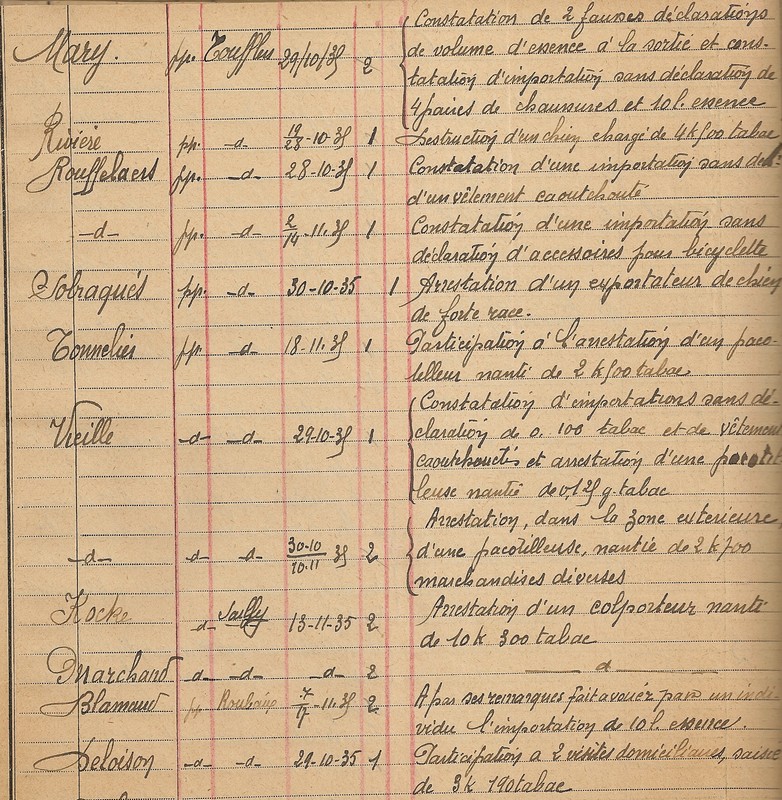 Constatation de 2 fausses déclarations
Mary. pp. Toufflers 29/10/35 2 de volume d'essence à la sortie et cons-
tatation d'importation sans déclaration de
4 paires de chaussures et 10 l. essence
Rivière pp. -d- 19/28-10-35 1 Destruction d'un chien chargé de 4k500 tabac
Rouffelaers pp. -d- 28-10-35 1 Constatation d'une importation sans
d'un vêtement caoutchouté
-d- pp. -d- 2/14-11-35 1 Constatation d'une importation sans
déclaration d'accessoires pour bicyclette
pp. -d- 30-10-35 1 Arrestation d'un exportateur de chien
de forte race.
Tonnelier pp. -d- 18-11-35 1 Participation à l'arrestation d'un paco-
tilleur nanti de 2k500 tabac
Constatation d'importations sans dé-
Vieille -d- -d- 29-10-35 1 claration de 0.100 tabac et de vêtements
caoutchoutés et arrestation d'une pacotil-
leuse nantie de 0,125 g. tabac
Arrestation, dans la zone extérieure,
-d- -d- -d- 30-10/10-11 35 2 d'une pacotilleuse, nantie de 2k700
marchandises diverses
Kocke -d- Sailly 13-11-35 2 Arrestation d'un colporteur nanti
de 10k 300 tabac
Marchand -d- -d- -d- 2 -d-
Blamaud pp. Roubaix -11-35 2 A par ses remarques fait avouer par un indi-
vidu l'importation de 10 l. essence.
Deloison -d- -d- 29-10-35 1 Participation à 2 visites domiciliaires, saisie
de 3k 190 tabac